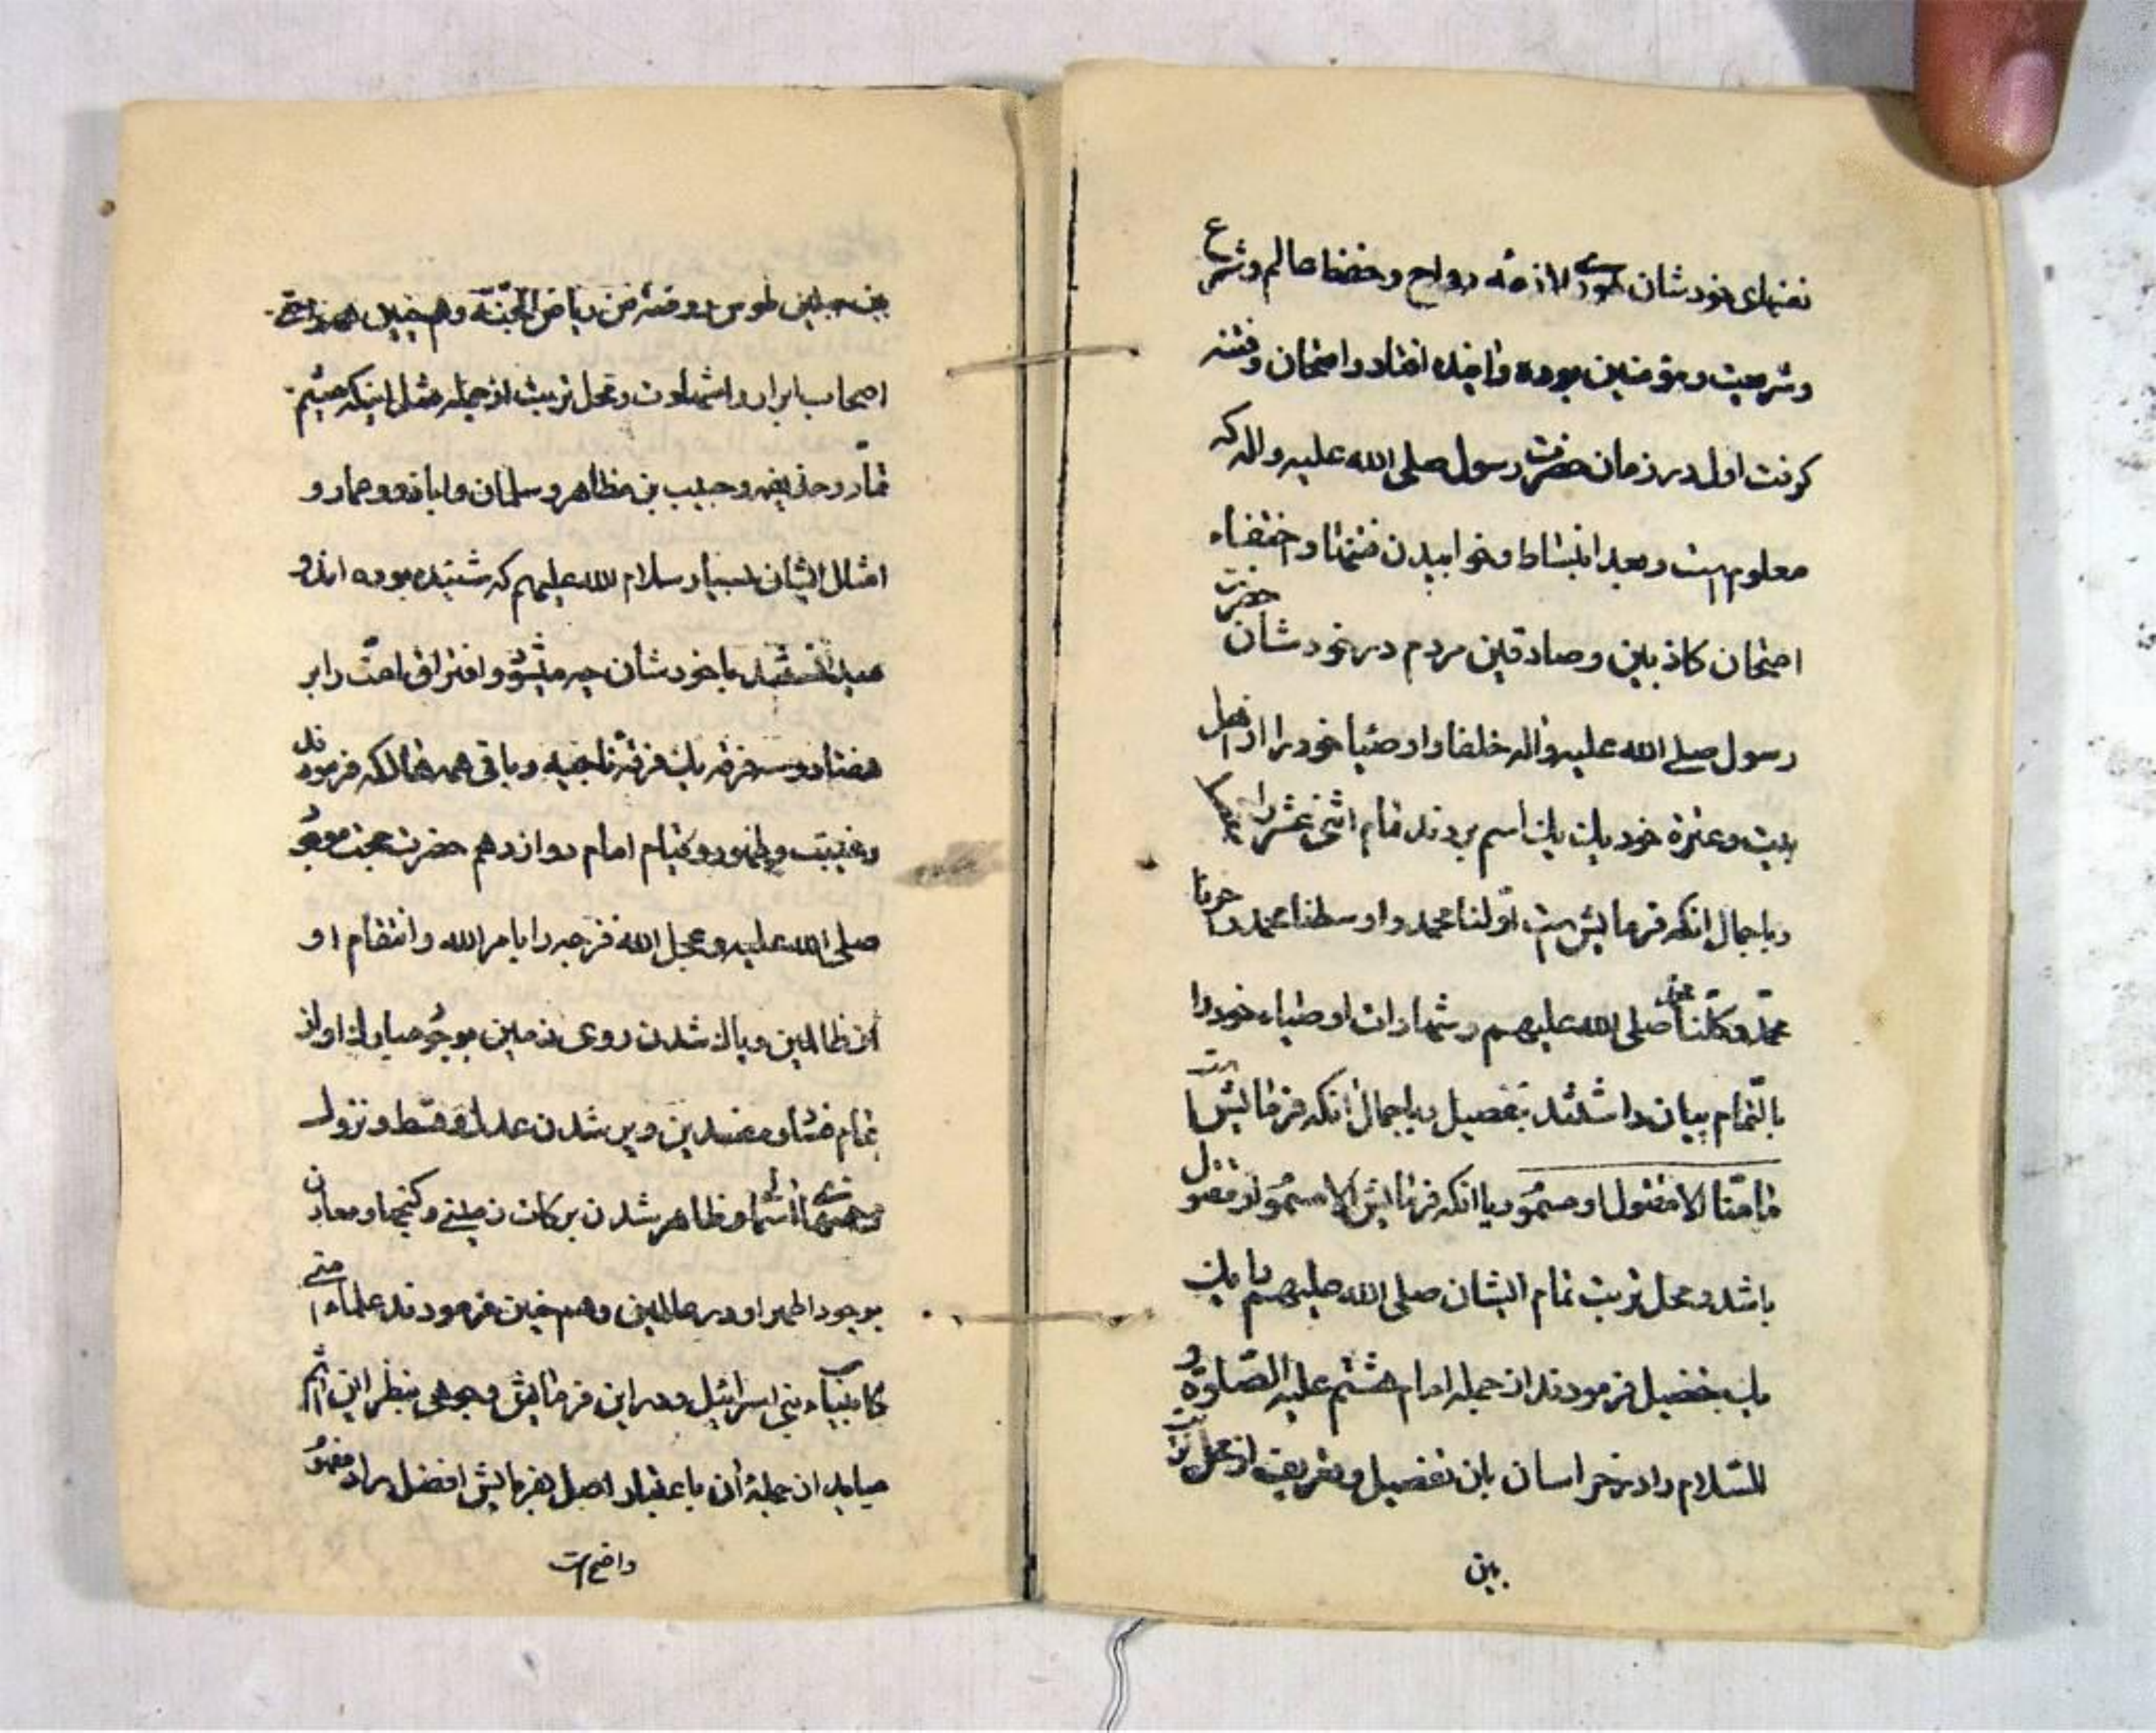 نفسهای خودشان لازمه رواح و حفظ عالم و شرع
و شریعت و مؤمنین بوده و آینده افتاد و امتحان و فتنه
کرفت اول در زمان حضرت رسول صلی الله علیه واله که
معلوم است و بعد انبساط و خوابیدن فتنها و اختفاء
امتحان کاذبین و صادقین مردم در خودشان حضرت
رسول صلی الله علیه واله خلفا و اوصیا خود را از اهل
بیت و عترة خود یك یك اسم بردند تمام اثنی عشر را
و باجمال انکه فرمایش است اولنا محمد و اوسطنا محمد و اخرنا
محمد و کلنا محمد صلی الله علیهم و شهادات اوصیاء خود را
بالتمام بیان داشتند بتفصیل و باجمال انکه فرمایش است
ما منا الا مقتول او مسموم و یا انکه فرمایش الا مسموم او مقتول
باشد و محل تربت تمام ایشان صلی الله علیهم یا یك
یك بتفصیل فرمودند از جمله امام هشتم علیه الصلوة و
السلام را در خراسان باین تفصیل و تعریف از محل تربت
بین
بین جبلین طوس روضة من ریاض الجنة و همچنین
اصحاب ابرار و اشهادت و محل تربت از جمله مثل اینکه میثم
تمار و حذیفه و حبیب بن مظاهر و سلمان و اباذر و عمار و
امثال ایشان بسیار سلام الله علیهم که شنیده بوده اند و
با خودشان چه میشود و افتراق امت را بر
هفتاد و سه فرقه یك فرقه ناجیه و باقی همه هالکه فرمودند
و غیبت و ظهور و قیام امام دوازدهم حضرت حجت موعود
صلی الله علیه و عجل الله فرجه را بامر الله و انتقام او
از ظالمین و پاك شدن روی زمین بوجود مبارك او از
تمام فتنها و مفسدین و پر شدن عدل و قسط و نزول
عیسی از سما و ظاهر شدن برکات زمینی و کنجها و معادن
بوجود اطهر او در عالمین و همچنین فرمودند علماء امتی
کانبیاء بنی اسرائیل و در این فرمایش وجوهی بنظر این اثم
میاید از جمله آن باعتبار اصل فرمایش افضل مراد مفهوم
واضح است